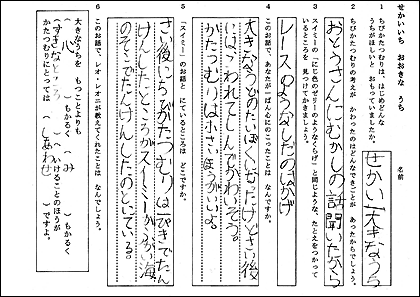 せかいいち おおきな うち
名前
1 ちびかたつむりは、はじめどんな
うちがほしいと おもっていましたか。
せかい一大きなうち
2 ちびかたつむりの考えが かわったのはどんなできごとが あったからでしょう。
おとうさんにむかしの話聞いたから
3 スイミーの「にじ色のゼリーのようなくらげ」と同じような、たとえをつかって
いるところを 見つけてかきましょう。
レースのようなしだのはかげ
4 このお話で、あなたが一ばん心にのこったことは なんですか。
大きなうちの
かたつむりは小さいほうがいいよ。
5 「スイミー」のお話と にているところは どこですか。
さい後にちびかたつむりは一ぴきでたん
けんしたところがスイミーがふかい海
のそこでたんけんしたのとにている。
6 このお話で、レオ・レオニが教えてくれたことは なんでしょう。
大きなうちを もつことよりも
( 心 ) もかるく ( み ) もかるく
( すきなところ ) へいけることのほうが
かたつむりにとっては ( しあわせ ) ですよ。